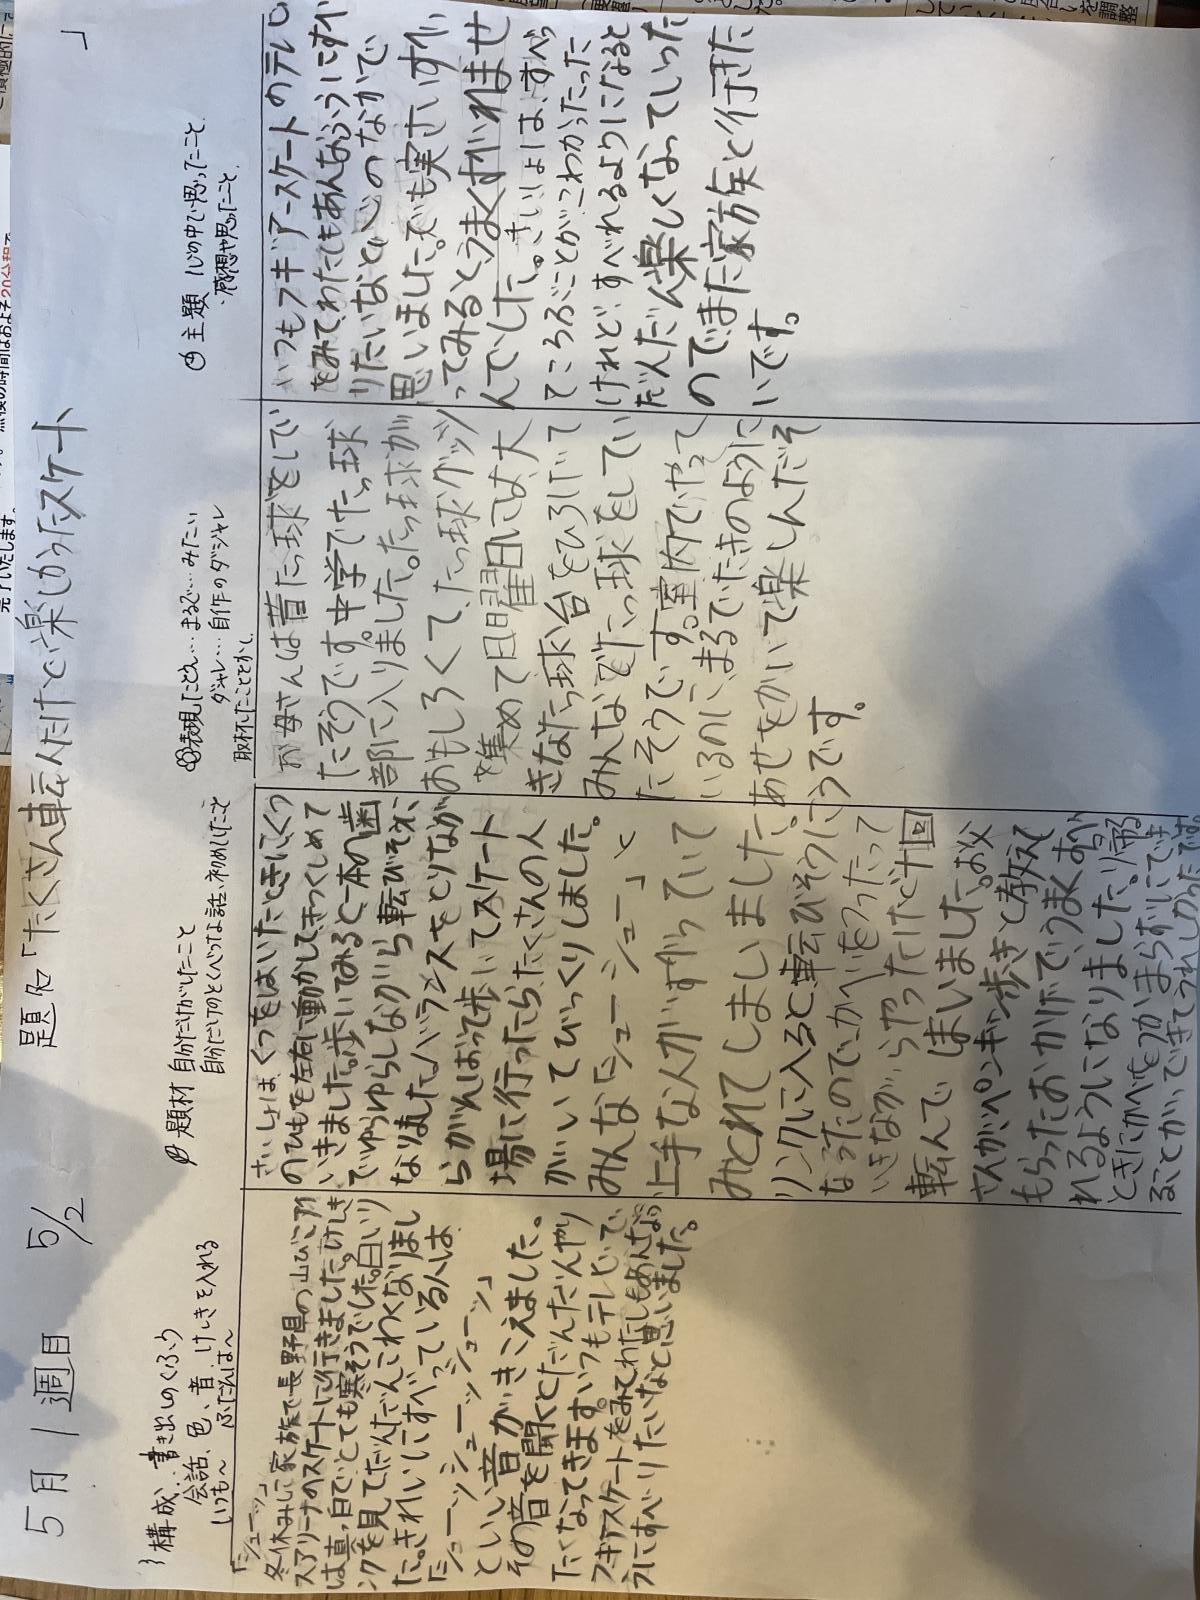 5月1週目 5/2 題名「たくさん転んだけど楽しかったスケート」
構成、書き出しのくふう
会話、色、音、けしきを入れる
いつも〜 ふだんは〜
「シューッ」
冬休みに家族で長野県の
スアリーナのスケートに行きました。けしき
は真っ白でとても寒そうでした。白いリ
ンクを見てだんだんこわくなりまし
た。きれいにすべっている人は
「シューッシューッシューッ」
といい音がきこえました。
その音を聞くとだんだんやり
たくなってきます。いつもテレビで
フギアスケートをみてわたしもあんなふ
うにすべりたいなと思いました。
題材 自分だけがしたこと
自分だけのとくべつな話、初めてしたこと
さいしょは、くつをはいたときにくつ
のひもを左右に動かしてきつくしめて
いきました。歩いてみると一本の歯
でゆらゆらしながら転びそうに
なりました。バランスをとりなが
らがんばって歩いてスケート
場に行ったら、たくさんの人
がいてびっくりしました。
みんな「シューシュー」と
上手な人がすべっていて
みとれてしまいました。
リンクに入ると転びそうに
なったのでかべをつたって
いきながらやったけど十回
転んでしまいました。お父
さんがペンギン歩きと教えて
もらったおかげでうまくすべ
れるようになりました。帰る
ときにかべをつかまらずにでき
ることができてうれしかったです。
表現 たとえ…まるで…みたい
ダジャレ…自作のダジャレ
取材したこととか
お母さんは昔たっ球をして
たそうです。中学でたっ球
部に入りました。たっ球が
おもしろくて、たっ球グッツ
を集めて日曜日には、大
きなたっ球台をひろげて
みんなでたっ球をしてい
たそうです。室内でやって
いるのに、まるでたきのように
あせをかいて楽しんだそ
うです。
主題 心の中で思ったこと
・感想や思ったこと
いつもフギアースケートのテレビ
をみてわたしもあんなふうにすべ
りたいなと心のなかで
思いました。でも実さいすべ
ってみるとうまくすべれませ
んでした。さいしょは、すべっ
てころぶことがこわかったった
けれど、すべれるようになると
だんだん楽しくなっていった
のでまた家族と行きた
いです。